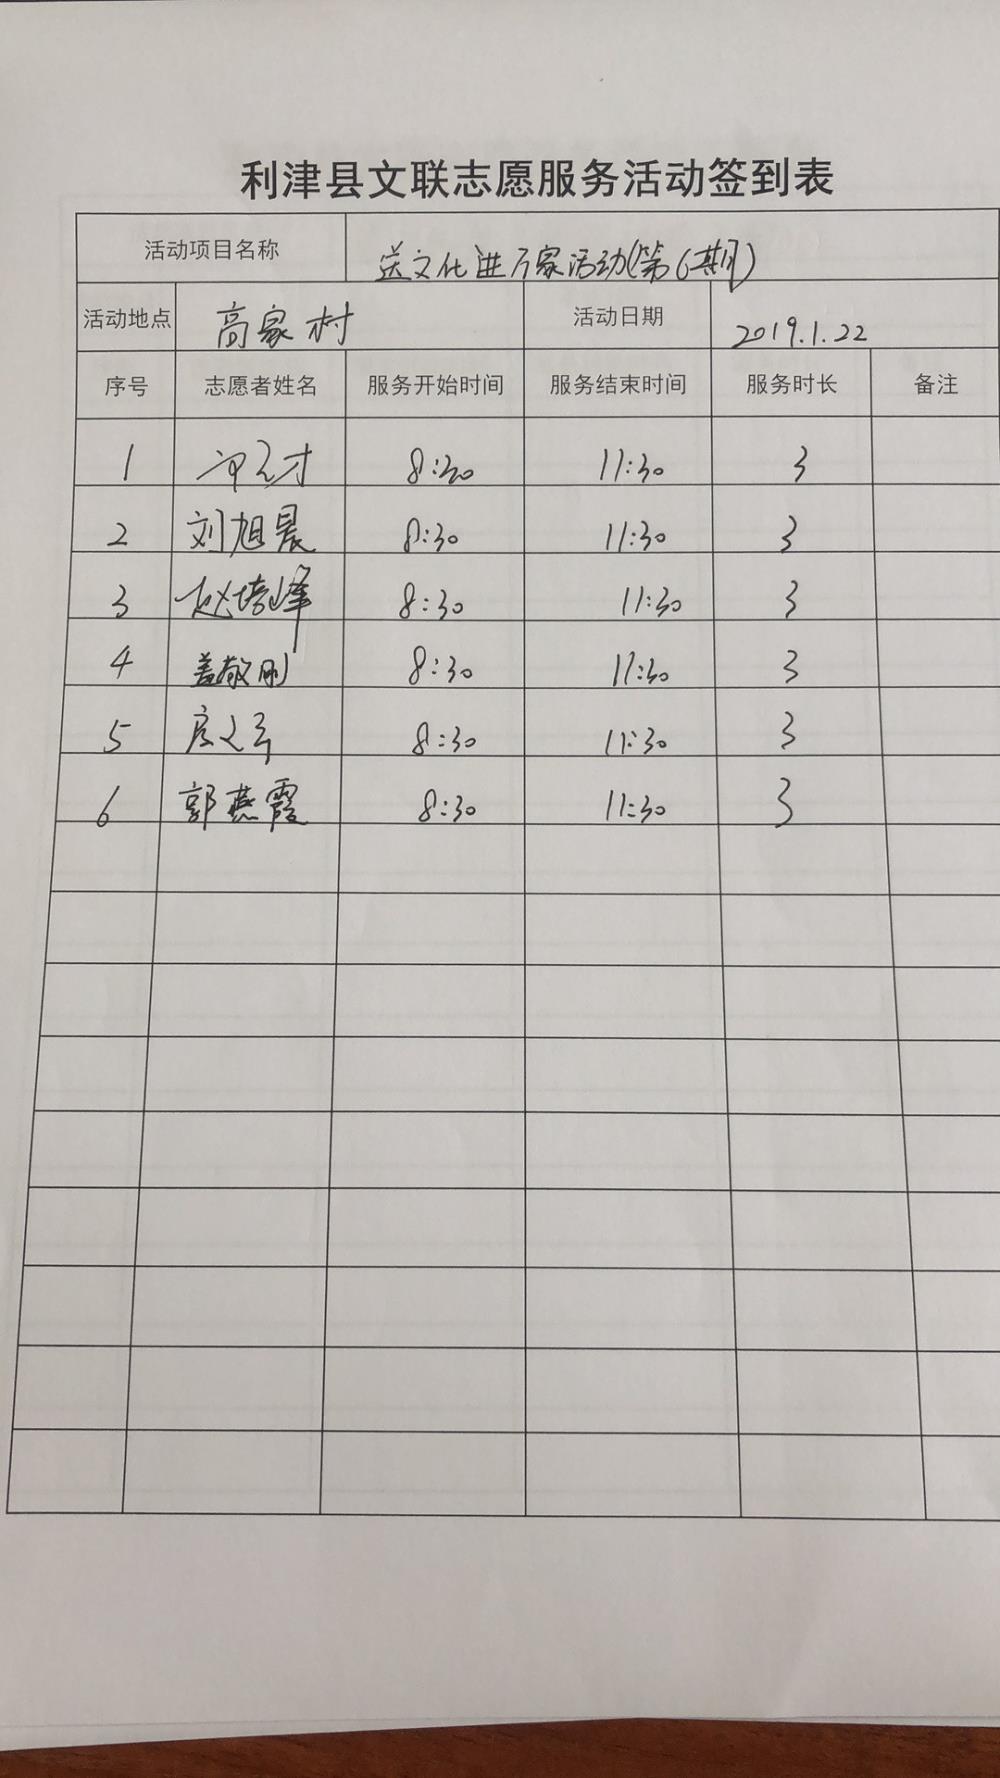 利津县文联志愿服务活动签到表
活动项目名称 送文化进万家活动(第6期)
活动地点 高家村 活动日期 2019.1.22
序号 志愿者姓名 服务开始时间 服务结束时间 服务时长 备注
1 8:30 11:30 3
2 刘旭晨 8:30 11:30 3
3 赵培峰 8:30 11:30 3
4 盖敬刚 8:30 11:30 3
5 8:30 11:30 3
6 郭燕霞 8:30 11:30 3